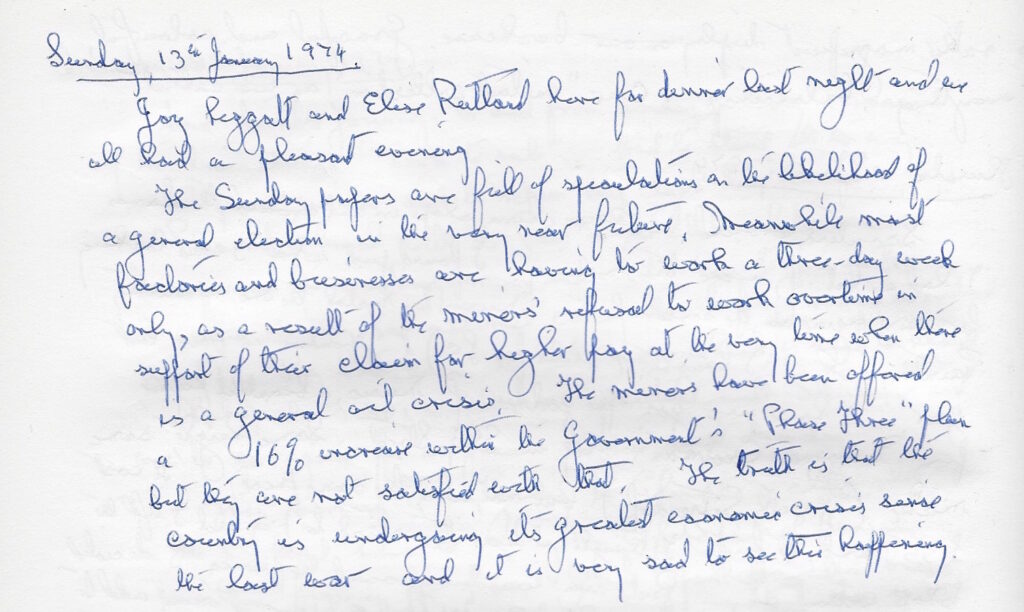 Sunday, 13th January 1974.
Joy Leggatt and Elise Rutland here for dinner last night and we
all had a pleasant evening
The Sunday papers are full of speculations on the likelihood of
a general election in the very near future. Meanwhile most
factories and businesses are having to work a three-day week
only, as a result of the miners' refusal to work overtime in
support of their claim for higher pay at the very time when there
is a general oil crisis. The miners have been offered
a 16% increase within the Government's "Phase Three" plan
but they are not satisfied with that. The truth is that the
country is undergoing its greatest economic crisis since
the last war and it is very sad to see this happening.